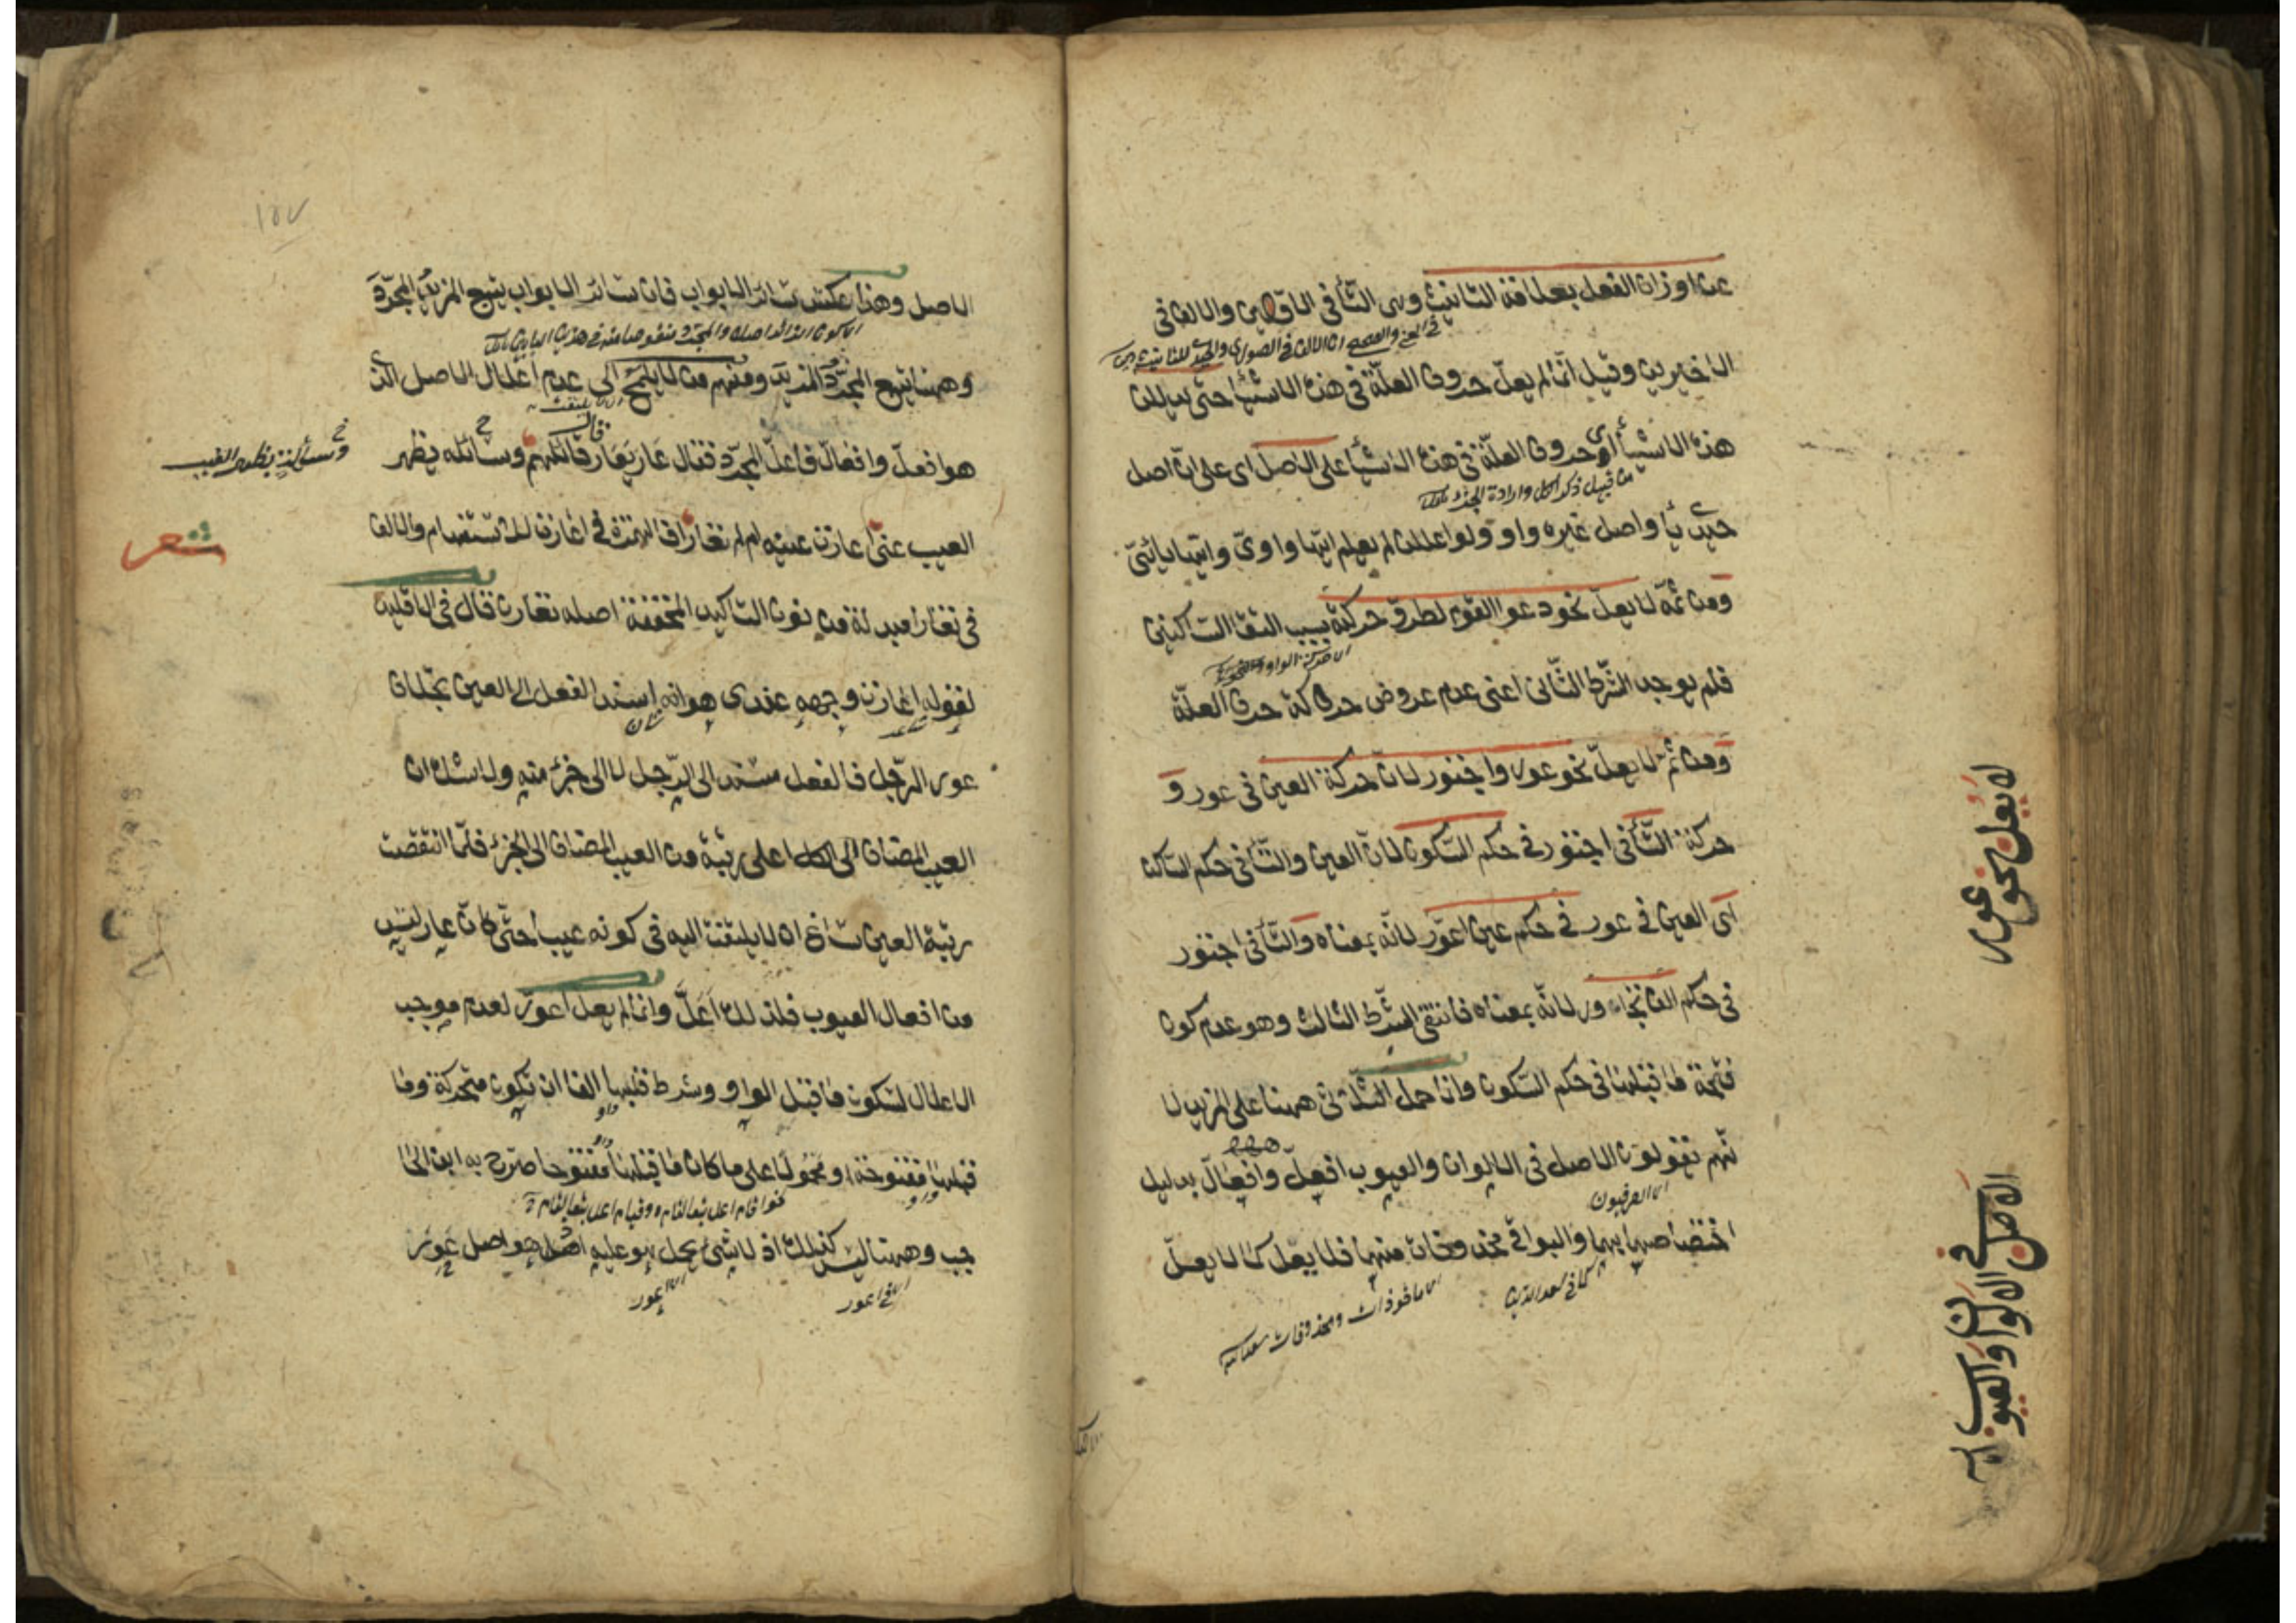 عن اوزان الفعل بعلامة التانيث وهى التاء فى الاولين والالف فى
الاخيرين وقيل انما لم يعل حروف العلة فى هذه الاشياء حتى يدللن
هذه الاشياء اى حروف العلة فى هذه الاشياء على الاصل اى على ان اصل
من قبيل ذكر الكل وارادة الجزء
حيدى ياء واصل غيره واو ولو اعللن لم يعلم ايتها واوى وايتها يائى
ومن ثمه لا يعل نحو دعوا القوم لطرو حركته بسبب التقاء الساكنين
فلم يوجد الشرط الثانى اعنى عدم عروض حركة حرف العلة
ومن ثم لا يعل نحو عور واجتور لان حركة العين فى عور و
حركة التاء فى اجتور فى حكم السكون لان العين والتاء فى حكم الساكن
اى العين فى عور فى حكم عين اعور لانه بمعناه والتاء فى اجتور
فى حكم الف تجاور لانه بمعناه فانتفى الشرط الثالث وهو عدم كون
فتحة ما قبلها فى حكم السكون وانما حمل الثلاثى ههنا على المزيد لا
نهم يقولون الاصل فى الالوان والعيوب افعل وافعال بدليل
اى الصرفيون
اختصاصهما بهما والبواقى محذوفات منهما فلا يعل كما لا يعل
كما فى سعد الدين
اى ماخوذات ومحذوفات
لا يعل نحو عور
الاصل فى الالوان والعيوب
١٥٧
الاصل وهذا عكس سائر الابواب فان سائر الابواب يتبع المزيد المجرد
وههنا يتبع المجرد المزيد ومنهم من لا يلمح الى عدم اعلال الاصل الذى
اى لا يلتفت
هو افعل وافعال فاعل المجرد فقال عار يعار قال قائلهم وسائله يظهر
شعر
العيب عنى اعارت عينه ام لم تعارا فالهمزة فى اعارت للاستفهام والالف
فى تعارا مبدلة من نون التاكيد المخففة اصله تعارن قال فى الاقليد
لقوله اعارت وجهه عندى هو انه اسند الفعل الى العين بخلاف
شاعر شان
عور الرجل فالفعل مسند الى الرجل لا الى جزء منه ولا شك ان
العيب المضاف الى الكل اعلى رتبة من العيب المضاف الى الجزء فلما انتقصت
رتبة العين ساغ ان لا يلتفت اليه فى كونه عيبا حتى كان عار ليس
من افعال العيوب فلذلك اعل وانما لم يعل اعور لعدم موجب
الاعلال لسكون ما قبل الواو وشرط قلبها الفا ان تكون متحركة وما
قبلها مفتوحة او محمولا على ما كان ما قبلها مفتوحا صرح به ابن الحا
جب وههنا ليس كذلك اذ لا شىء يحمل هو عليه اصلا هو اصل عور
اى فى اعور اى اعور